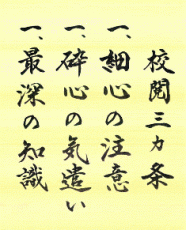 校閲三カ条
一、細心の注意
一、砕心の気遣い
一、最深の知識